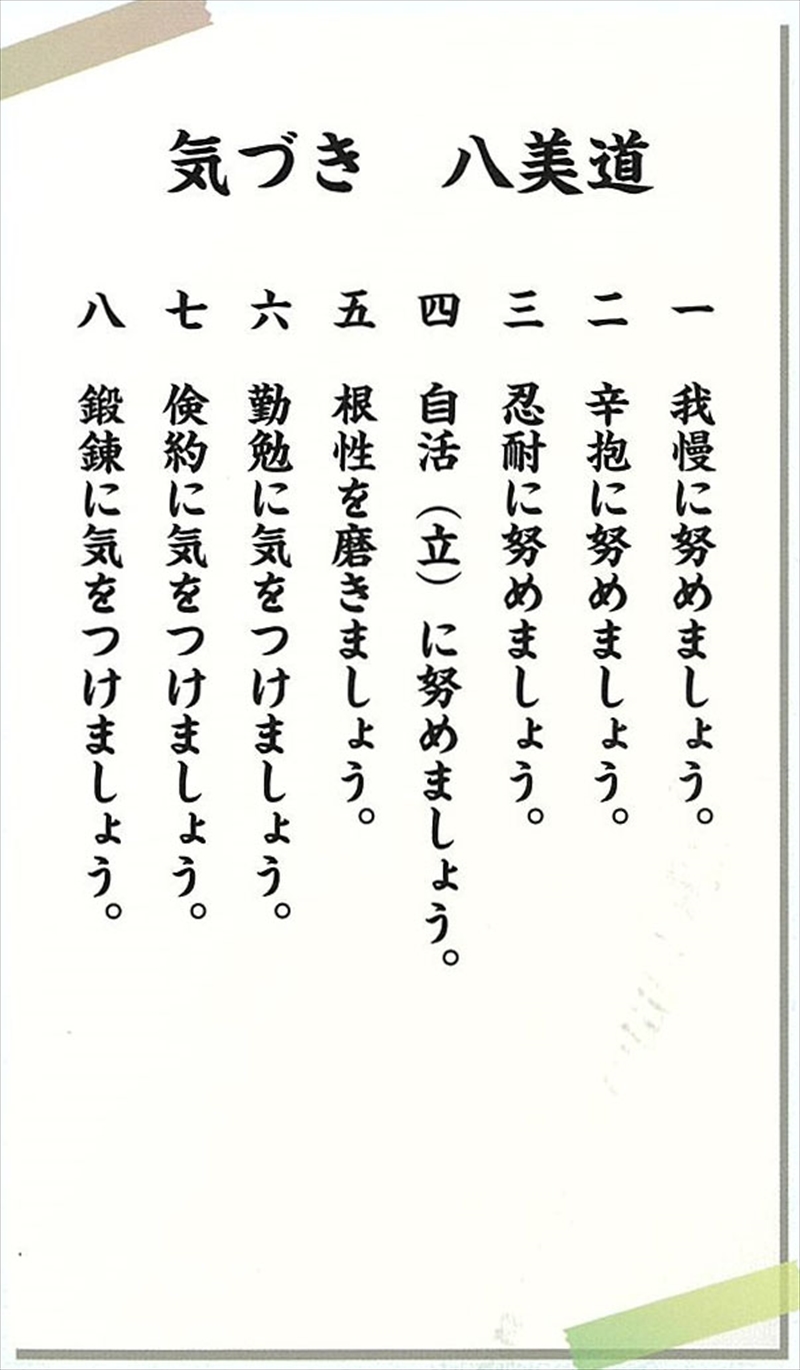 気づき　八美道
一　我慢に努めましょう。
二　辛抱に努めましょう。
三　忍耐に努めましょう。
四　自活（立）に努めましょう。
五　根性を磨きましょう。
六　勤勉に気をつけましょう。
七　倹約に気をつけましょう。
八　鍛錬に気をつけましょう。